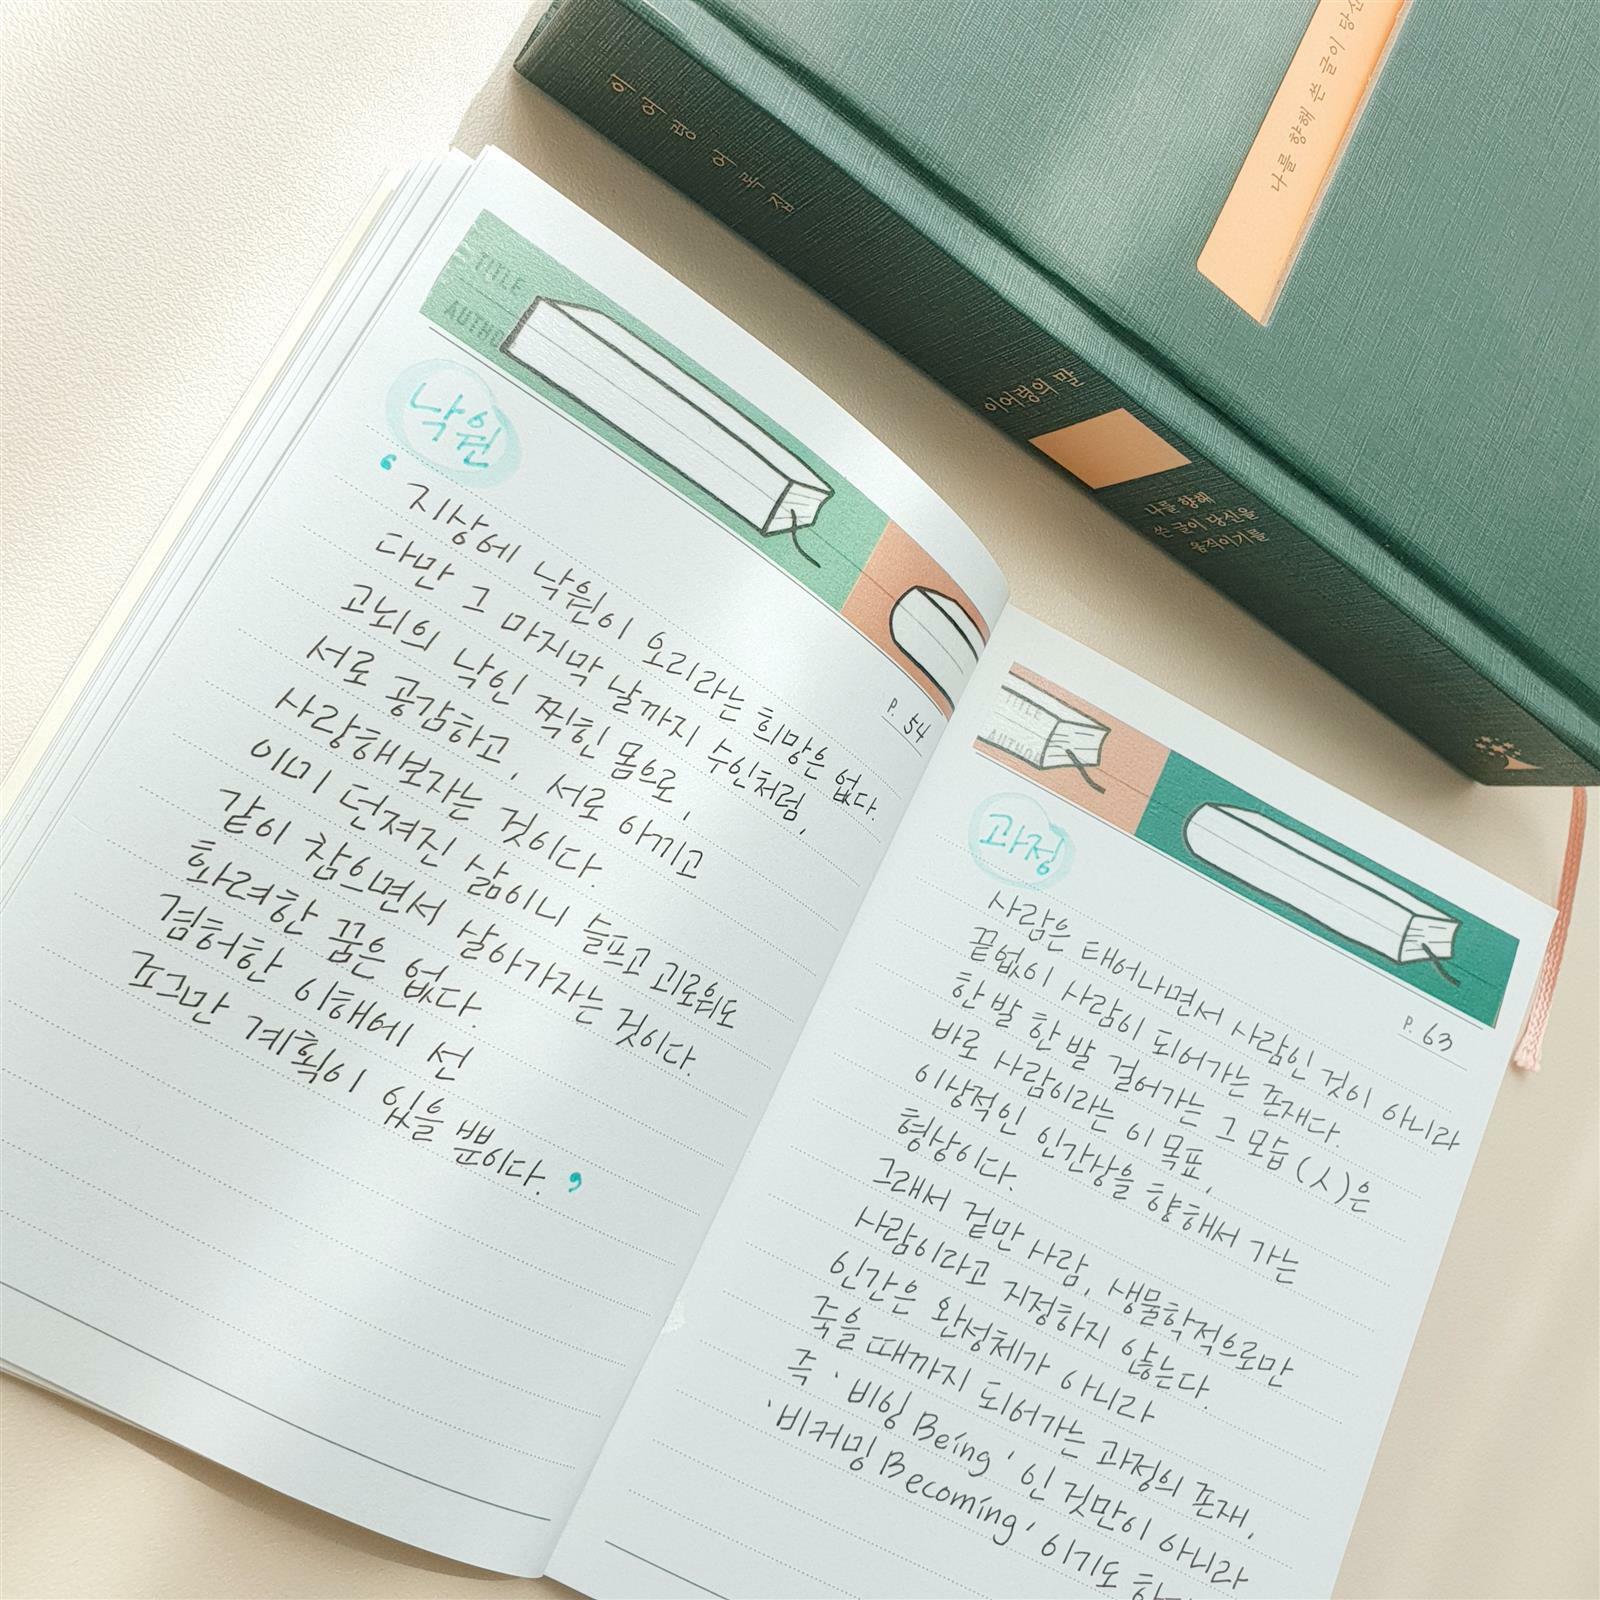 이어령 어록집
나를 향해 쓴 글이 당신
이어령의 말
나를 향해
쓴 글이 당신을
움직이기를
TITLE
AUTHO
낙원
P. 54
지상에 낙원이 오리라는 희망은 없다.
다만 그 마지막 날까지 수인처럼,
고뇌의 낙인 찍힌 몸으로,
서로 공감하고, 서로 아끼고
사랑해보자는 것이다.
이미 던져진 삶이니 슬프고 괴로워도
같이 참으면서 살아가자는 것이다.
화려한 꿈은 없다.
겸허한 이해에 선
조그만 계획이 있을 뿐이다.
TITLE
AUTHO
과정
P. 63
사람은 태어나면서 사람인 것이 아니라
끝없이 사람이 되어가는 존재다.
한 발 한 발 걸어가는 그 모습 (人)은
바로 사람이라는 이 목표,
이상적인 인간상을 향해서 가는
형상이다.
그래서 겉만 사람, 생물학적으로만
사람이라고 지정하지 않는다.
인간은 완성체가 아니라
죽을 때까지 되어가는 과정의 존재,
즉 '비잉 Being' 인 것만이 아니라
'비커밍 Becoming' 이기도